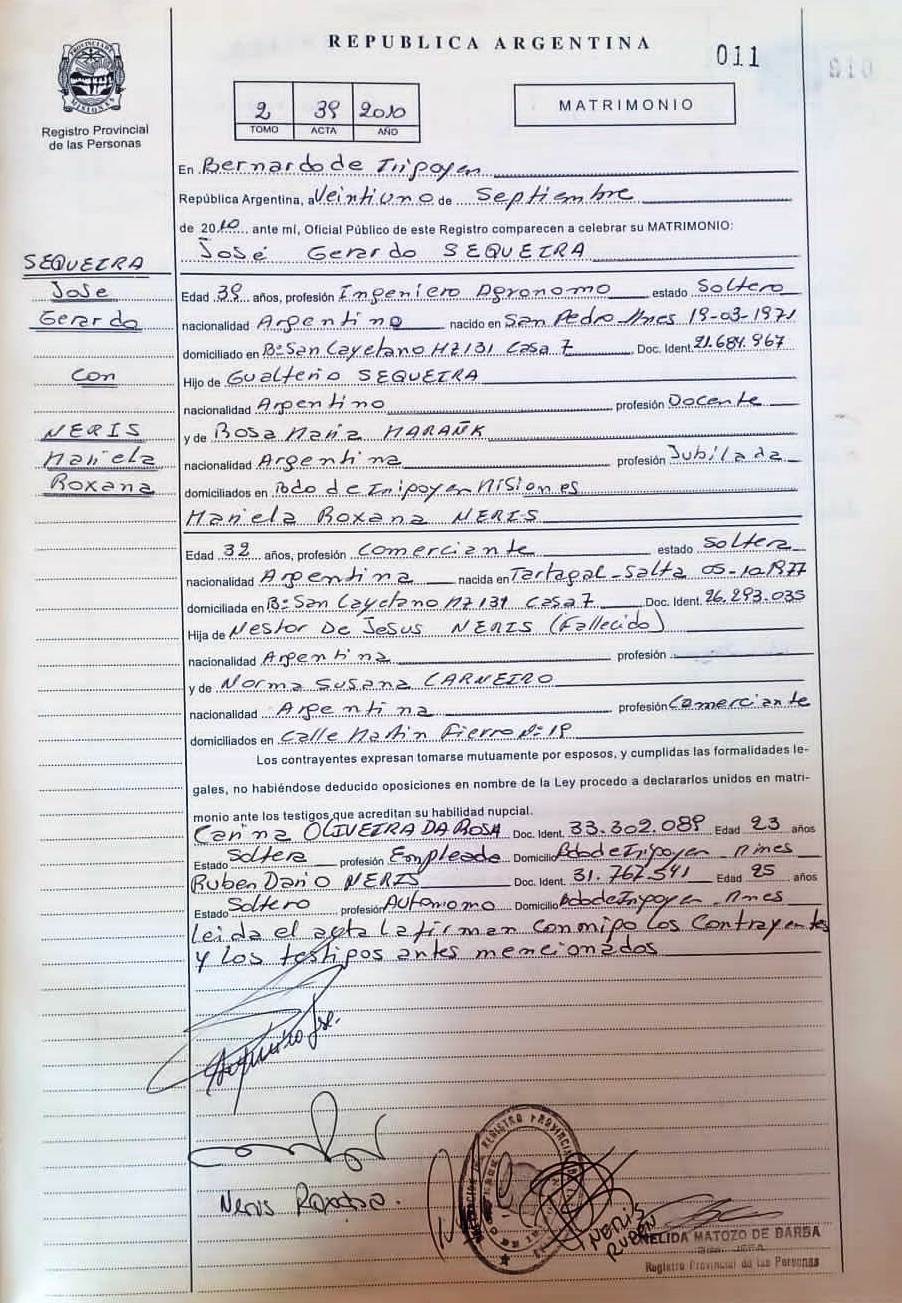 REPUBLICA ARGENTINA
011
PROVINCIA DE MISIONES
Registro Provincial
de las Personas
2 39 2010
TOMO ACTA AÑO
MATRIMONIO
En Bernardo de Irigoyen
República Argentina, a Veintiuno de Septiembre
de 2010 ante mí, Oficial Público de este Registro comparecen a celebrar su MATRIMONIO:
José Gerardo SEQUEIRA
SEQUEIRA
Jose
Gerardo
Con
NERIS
Mariela
Roxana
Edad 39 años, profesión Ingeniero Agronomo estado Soltero
nacionalidad Argentino nacido en San Pedro Mnes 19-03-1971
domiciliado en Bº San Cayetano MZ 131 Casa 7 Doc. Ident. 21.684.967
Hijo de Gualterio SEQUEIRA
nacionalidad Argentino profesión Docente
y de Rosa Maria MARAÑK
nacionalidad Argentina profesión Jubilada
domiciliados en Bdo de Irigoyen Misiones
Mariela Roxana NERIS
Edad 32 años, profesión Comerciante estado Soltera
nacionalidad Argentina nacida en Tartagal-Salta 05-10-1977
domiciliada en Bº San Cayetano MZ 131 Casa 7 Doc. Ident. 26.293.035
Hija de Nestor De Jesus NERIS (Fallecido)
nacionalidad Argentina profesión
y de Norma Susana CARNEIRO
nacionalidad Argentina profesión Comerciante
domiciliados en Calle Martin Fierro Nº 19
Los contrayentes expresan tomarse mutuamente por esposos, y cumplidas las formalidades le-
gales, no habiéndose deducido oposiciones en nombre de la Ley procedo a declararlos unidos en matri-
monio ante los testigos que acreditan su habilidad nupcial.
Carina OLIVEIRA DA ROSA Doc. Ident. 33.302.089 Edad 23 años
Estado Soltera profesión Empleada Domicilio Bdo de Irigoyen Mnes
Ruben Dario NERIS Doc. Ident. 31.767.541 Edad 25 años
Estado Soltero profesión Autonomo Domicilio Bdo de Irigoyen Mnes
Leida el acta la firman conmigo los Contrayentes
y los testigos antes mencionados
Sequeira Jose.
Neris Roxana.
NERIS
RUBEN
NELIDA MATOZO DE BARBA
Registro Provincial de las Personas